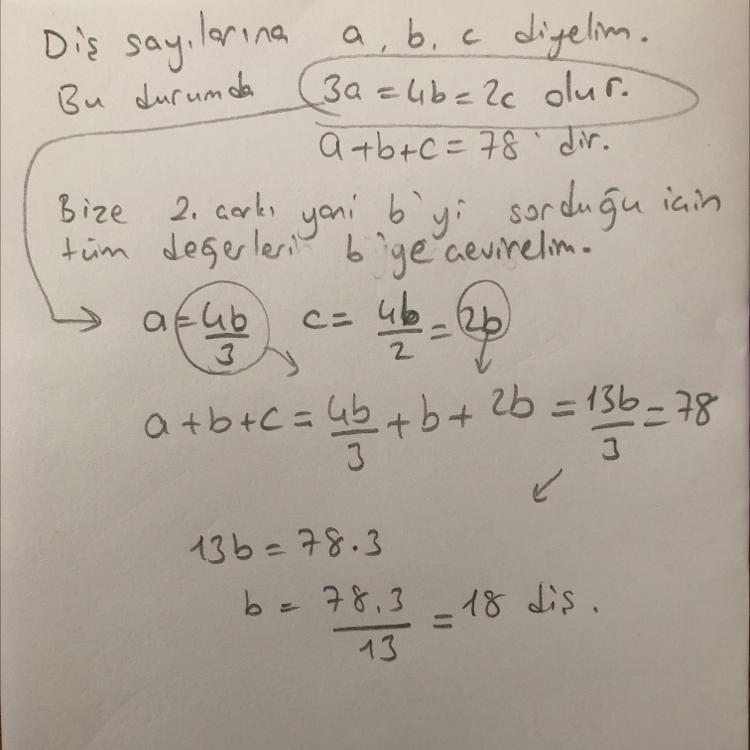 Diş sayılarına a, b, c diyelim.
Bu durumda 3a = 4b = 2c olur.
a+b+c = 78 dir.
Bize 2. çarkı yani b'yi sorduğu için
tüm değerleri b'ye çevirelim.
a = 4b/3 c = 4b/2 = 2b
a+b+c = 4b/3 + b + 2b = 13b/3 = 78
13b = 78.3
b = 78.3/13 = 18 diş.